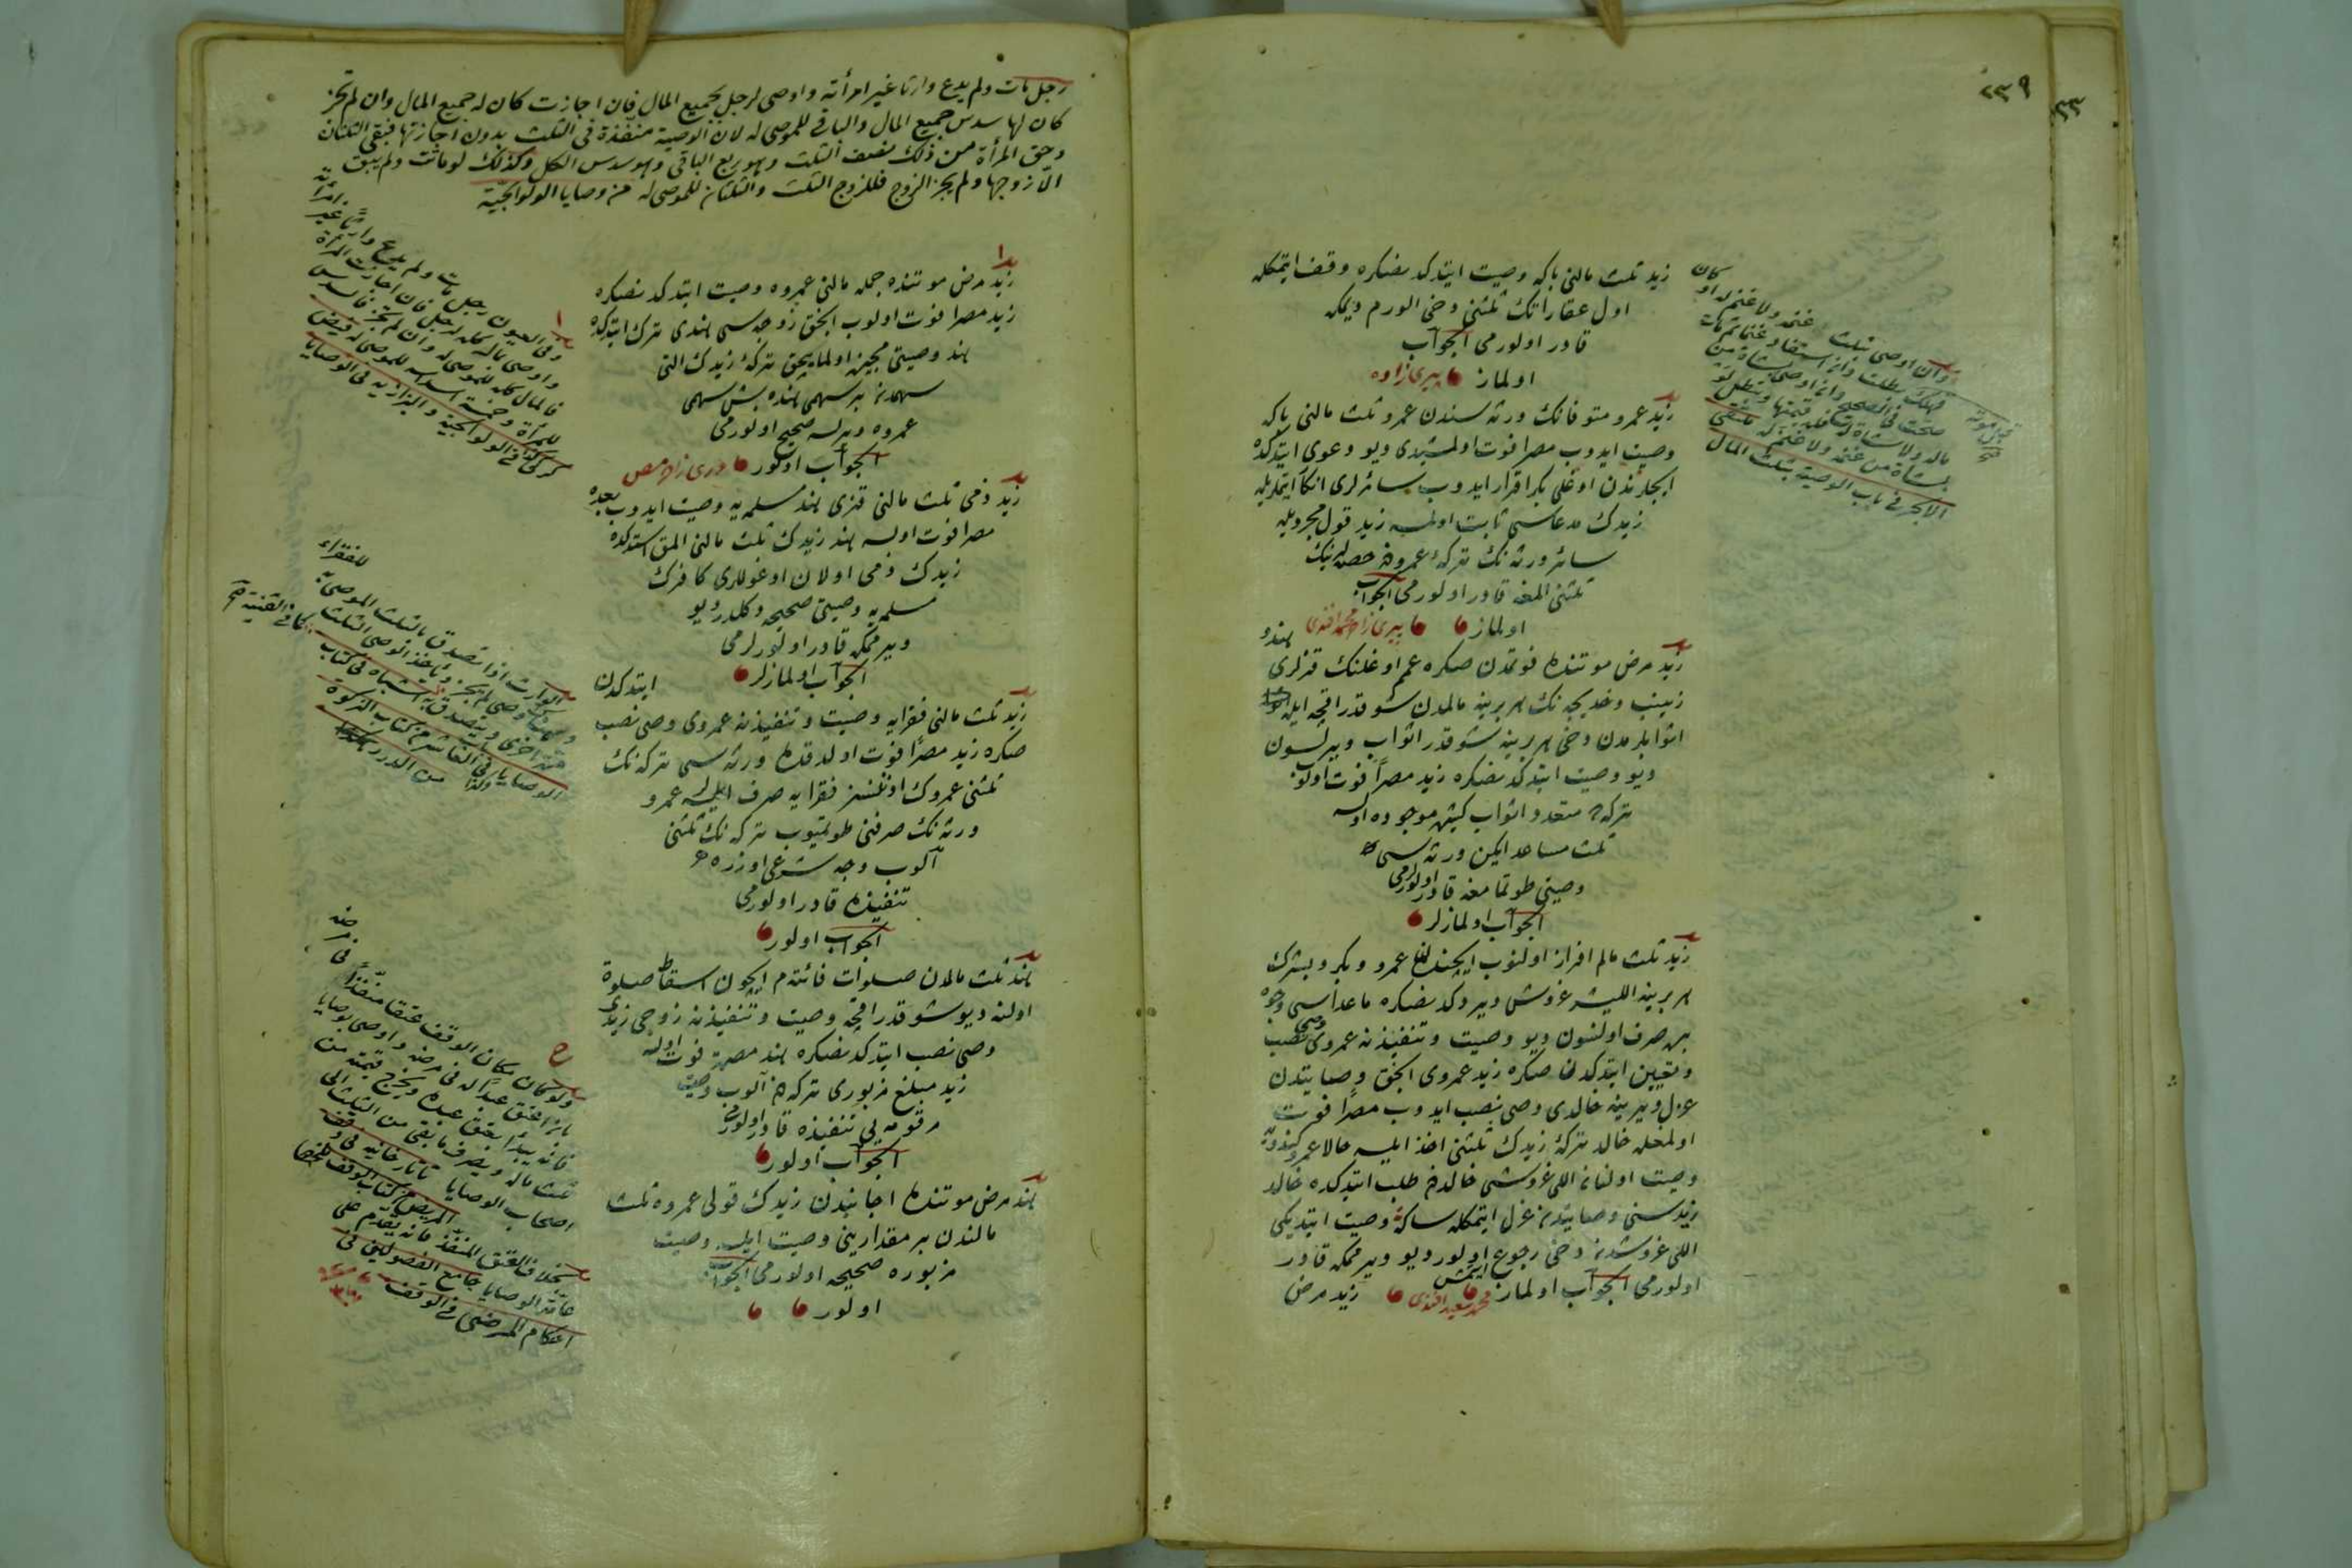 ٢٣٩
زيد ثلث مالنى باكه وصيت ايتدكدنصكره وقف ايتمكله
اول عقاراتك ثلثنى دخى الورم ديمكه
قادر اولورمى الجواب
اولماز پيرى زاده
زيد عمرو متوفانك ورثه سندن عمرو ثلث مالنى باكه
وصيت ايدوب مصرا فوت اولمشيدى ديو دعوى ايتدكده
ايچلرندن اوغلى بكر اقرار ايدوب سائرلرى انكار ايتملريله
زيدك مدعاسى ثابت اولمسه زيد قول مجرديله
سائر ورثه نك تركۀ عمرودن حصه لرينك
ثلثنى المغه قادر اولورمى الجواب
اولماز پيرى زاده محمد افندى
زيد مرض موتنده فوتمدن صكره عمم اوغلنك قزلرى هند و
زينب و خديجه نك هر برينه مالمدن شو قدر اقچه ايله
اثوابلرمدن دخى هر برينه شو قدر اثواب ويرلسون
ديو وصيت ايتدكدنصكره زيد مصرا فوت اولوب
تركه ده متعدد اثواب كيش موجوده اولسه
ثلث مساعد ايكن ورثه سى
وصيتى طوتمامغه قادر اولورلرمى
الجواب اولمازلر
زيد ثلث مالم افراز اولنوب ايچندن عمرو و بكر و بشرك
هر برينه اللیشر غروش ويردكدنصكره ماعداسى وجوه
بره صرف اولنسون ديو وصيت و تنفيذنه عمروى وصى نصب
و تعيين ايتدكدن صكره زيد عمروى انجق وصايتدن
عزل و يرينه خالدى وصى نصب ايدوب مصرا فوت
اولمغله خالد تركۀ زيدك ثلثنى اخذ ايلسه حالا عمرو كندويه
وصيت اولنان اللى غروشى خالددن طلب ايتدكده خالد
زيد سنى وصايتدن عزل ايتمكله سكا وصيت ايتديكى
اللى غروشدن دخى رجوع ايتمش اولور ديو ويرممكه قادر
اولورمى الجواب اولماز محمد سعيد افندى زيد مرض
وان اوصى بثلث غنمه ولا غنم له او كان
فهلك بطلت وان استفاد غنما ثم مات
صحت فى الصحيح وان اوصى بشاة من
ماله ولا شاة له فله قيمتها وتبطل لو
بشاة من غنمه ولا غنم له ملتقى
الابحر فى باب الوصية بثلث المال
قبل موته
رجل مات ولم يدع وارثا غير امرأته واوصى لرجل بجميع المال فان اجازت كان له جميع المال وان لم تجز
كان لها سدس جميع المال والباقى للموصى له لان الوصية منفذة فى الثلث بدون اجازتها فبقى الثلثان
وحق المرأة من ذلك نصف الثلث وهو ربع الباقى وهو سدس الكل وكذلك لو ماتت ولم يبق
الّا زوجها ولم يجز الزوج فللزوج الثلث والثلثان للموصى له من وصايا الولوالجية
زيد مرض موتنده جمله مالنى عمروه وصيت ايتدكدنصكره
زيد مصرا فوت اولوب انجق زوجه سى هندى ترك ايتدكده
هند وصيتى مجيز اولمايجق تركۀ زيدك التى
سهمدن بر سهمى هنده بش سهمى
عمروه ويرلسه صحيح اولورمى
الجواب اولور
زيد ذمى ثلث مالنى قزى هند مسلمه يه وصيت ايدوب بعده
مصرا فوت اولسه هند زيدك ثلث مالنى المق استدكده
زيدك ذمى اولان اوغوللرى كافرك
مسلمه يه وصيتى صحيحه دكلدر ديو
ويرممكه قادر اولورلرمى
الجواب اولمازلر
زيد ثلث مالنى فقرايه وصيت و تنفيذنه عمروى وصى نصب ايتدكدن
صكره زيد مصرا فوت اولدقده ورثه سى تركه نك
ثلثنى عمروك اذنسز فقرايه صرف ايلسه لر عمرو
ورثه نك صرفنى طوتميوب تركه نك ثلثنى
آلوب وجه شرعى اوزره
تنفيذه قادر اولورمى
الجواب اولور
هند ثلث مالمدن صلوات فائتهم ايچون اسقاط صلوة
اولنه ديو شو قدر اقچه وصيت و تنفيذنه زوجى زيدى
وصى نصب ايتدكدنصكره هند مصرة فوت اولسه
زيد مبلغ مزبورى تركه دن آلوب وصيت
مرقومه يى تنفيذه قادر اولورمى
الجواب اولور
هند مرض موتنده اجانبدن زيدك قولى عمروه ثلث
مالندن بر مقدارينى وصيت ايلسه وصيت
مزبوره صحيحه اولورمى الجواب
اولور
وفى العيون رجل مات ولم يدع وارثا غير امرأته
واوصى بماله كله لرجل فان اجازت المرأة
فالمال كله للموصى له وان لم تجز فالسدس
للمرأة وخمسة اسداسه للموصى له فيض
كركى كذا فى الولوالجية والبزازيه فى الوصايا
الوارث اذا تصدق بالثلث الموصى به للفقراء
وهناك وصى لم يجز ويأخذ الوصى الثلث
مرة اخرى ويتصدق به اشباه فى كتاب
الوصايا
كما فى القنية
ولو كان مكان الوقف عتقا منفذا فى مرضه
بان اعتق عبدا له فى مرضه واوصى بوصايا
فانه يبدأ بعتق عبده ويخرج قيمته من
ثلث ماله ويصرف ما بقى من الثلث الى
اصحاب الوصايا تاتارخانيه فى وقف
المريض من كتاب الوقف ملخصا
بخلاف العتق المنفذ فانه يقدم على
عامة الوصايا جامع الفصولين فى
احكام المرضى فى الوقف